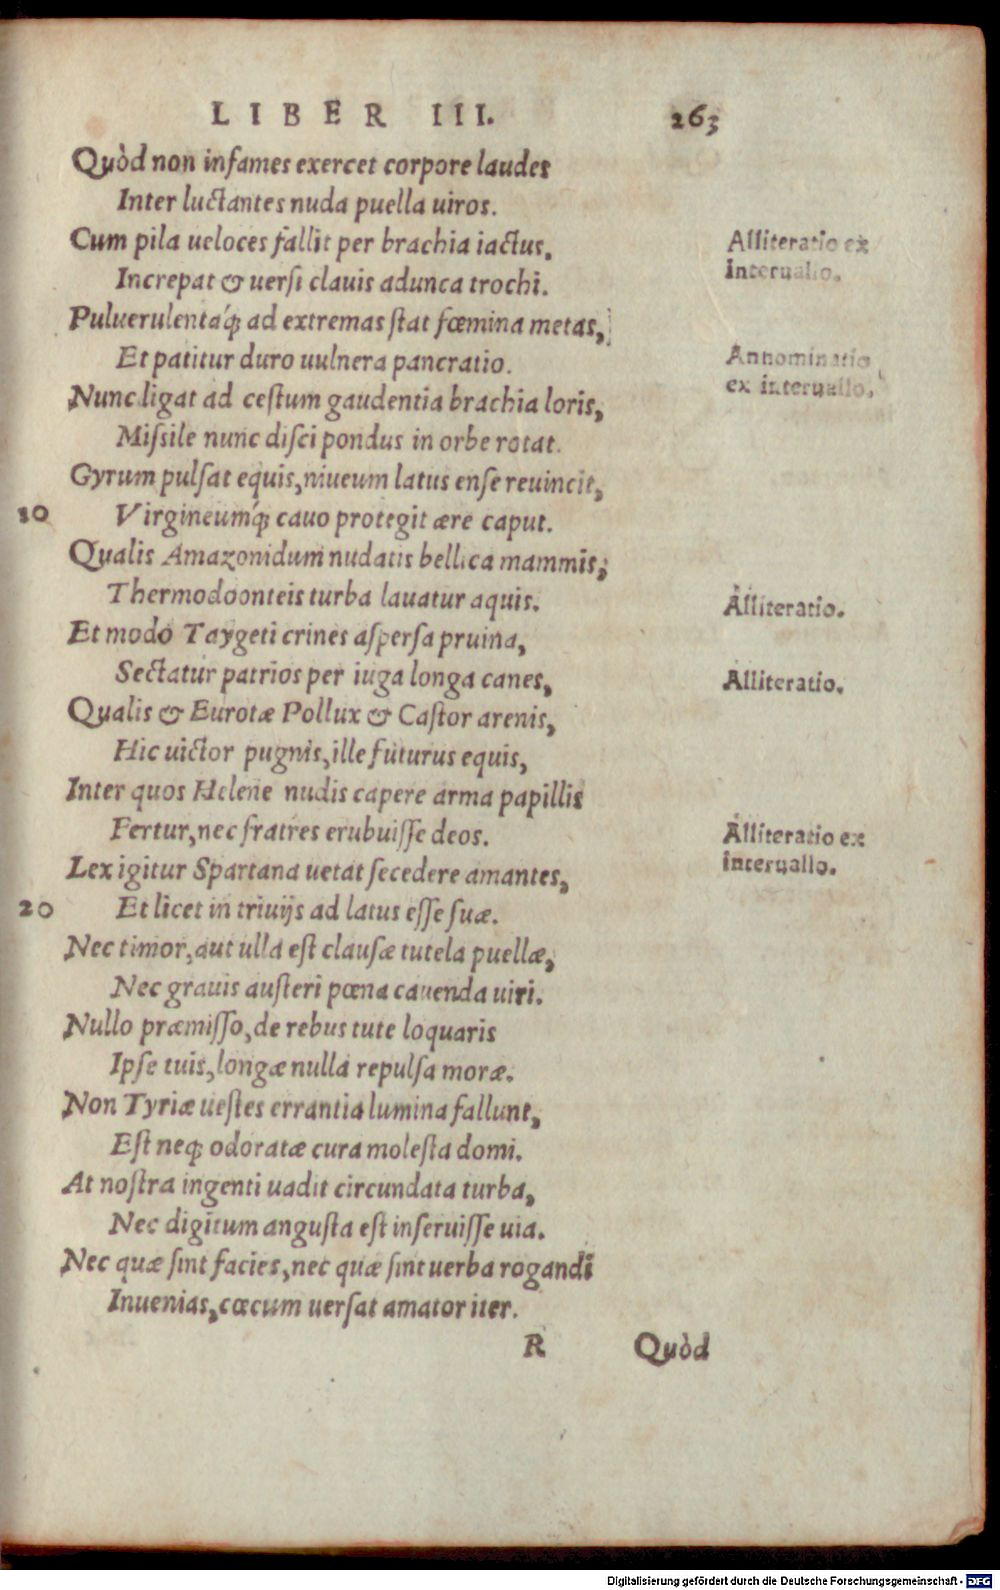 LIBER III. 263
Quòd non infames exercet corpore laudes
Inter luctantes nuda puella uiros.
Cum pila ueloces fallit per brachia iactus,
Alliteratio ex
interuallo.
Increpat & uersi clauis adunca trochi.
Puluerulentaq́; ad extremas stat fœmina metas,
Et patitur duro uulnera pancratio.
Annominatio
ex interuallo.
Nunc ligat ad cestum gaudentia brachia loris,
Missile nunc disci pondus in orbe rotat.
Gyrum pulsat equis, niueum latus ense reuincit,
10 Virgineumq́; cauo protegit ære caput.
Qualis Amazonidum nudatis bellica mammis,
Thermodoonteis turba lauatur aquis.
Alliteratio.
Et modo Taygeti crines aspersa pruina,
Sectatur patrios per iuga longa canes,
Alliteratio.
Qualis & Eurotæ Pollux & Castor arenis,
Hic uictor pugnis, ille futurus equis,
Inter quos Helene nudis capere arma papillis
Fertur, nec fratres erubuisse deos.
Alliteratio ex
interuallo.
Lex igitur Spartana uetat secedere amantes,
20 Et licet in triuijs ad latus esse suæ.
Nec timor, aut ulla est clausæ tutela puellæ,
Nec grauis austeri pœna cauenda uiri.
Nullo præmisso, de rebus tute loquaris
Ipse tuis, longæ nulla repulsa moræ.
Non Tyriæ uestes errantia lumina fallunt,
Est neq; odoratæ cura molesta domi.
At nostra ingenti uadit circundata turba,
Nec digitum angusta est inseruisse uia.
Nec quæ sint facies, nec quæ sint uerba rogandi
Inuenias, cœcum uersat amator iter.
R Quòd
Digitalisierung gefördert durch die Deutsche Forschungsgemeinschaft - DFG